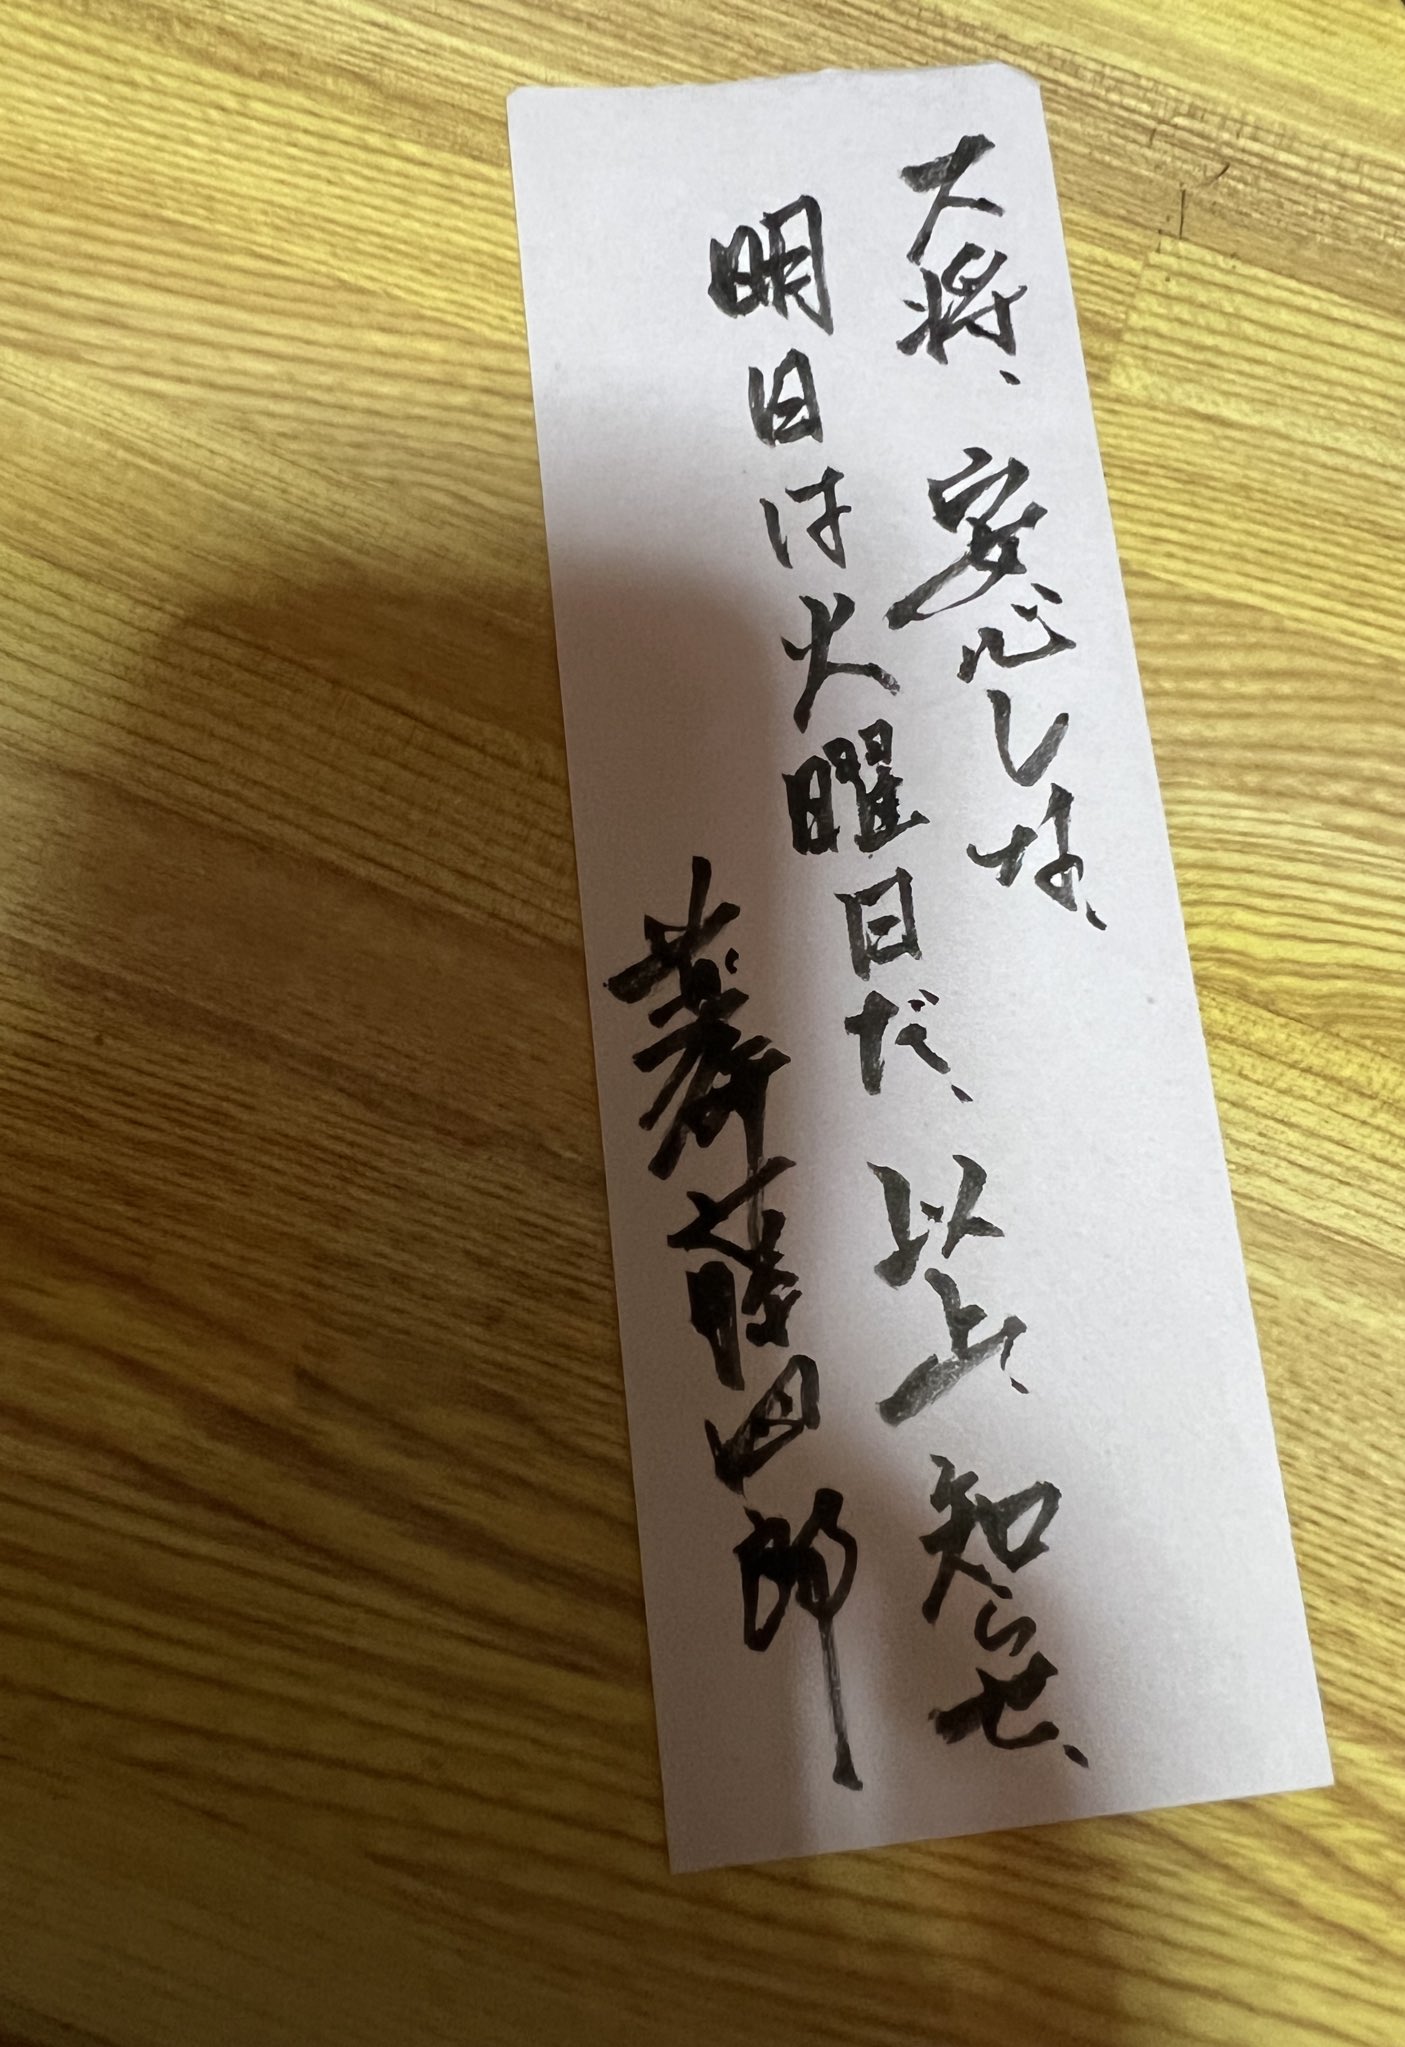 大将、安心しな、
明日は火曜日だ、以上、知らせ、
薬研藤四郎